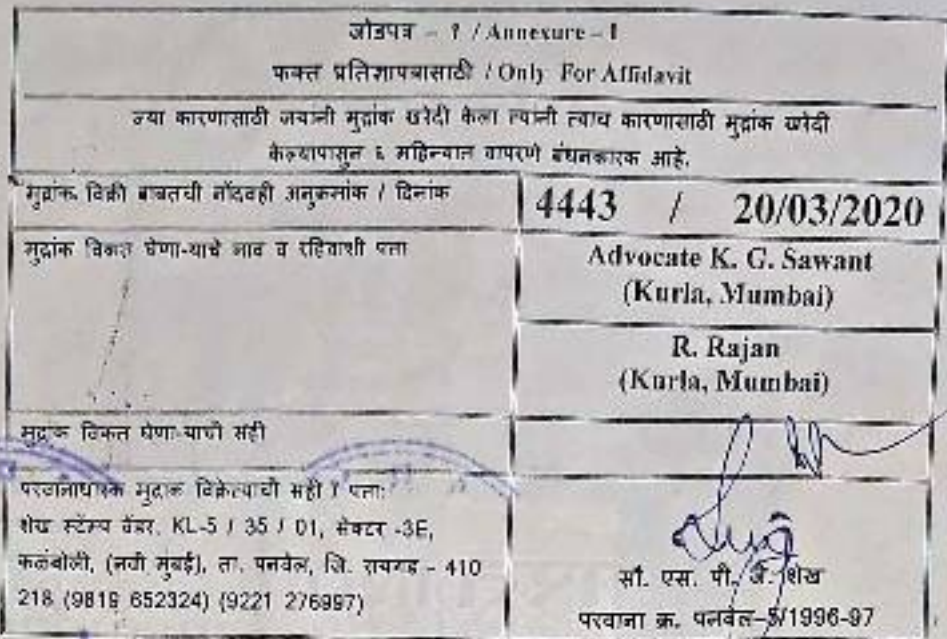 जोडपत्र - 1 / Annexure - I
फक्त प्रतिज्ञापत्रासाठी / Only For Affidavit
ज्या कारणासाठी ज्यांनी मुद्रांक खरेदी केला त्यांनी त्याच कारणासाठी मुद्रांक खरेदी
केल्यापासुन ६ महिन्यात वापरणे बंधनकारक आहे.
मुद्रांक विक्री बाबतची नोंदवही अनुक्रमांक / दिनांक
4443 / 20/03/2020
मुद्रांक विकत घेणा-याचे नाव व रहिवाशी पत्ता
Advocate K. G. Sawant
(Kurla, Mumbai)
R. Rajan
(Kurla, Mumbai)
मुद्रांक विकत घेणा-याची सही
परवानाधारक मुद्रांक विक्रेत्याची सही / पत्ता:
शेख स्टॅम्प वेंडर, KL-5 / 35 / 01, सेक्टर -3E,
कळंबोली, (नवी मुंबई), ता. पनवेल, जि. रायगड - 410
218 (9819 652324) (9221 276997)
सौ. एस. पी. जे. शेख
परवाना क्र. पनवेल-5/1996-97